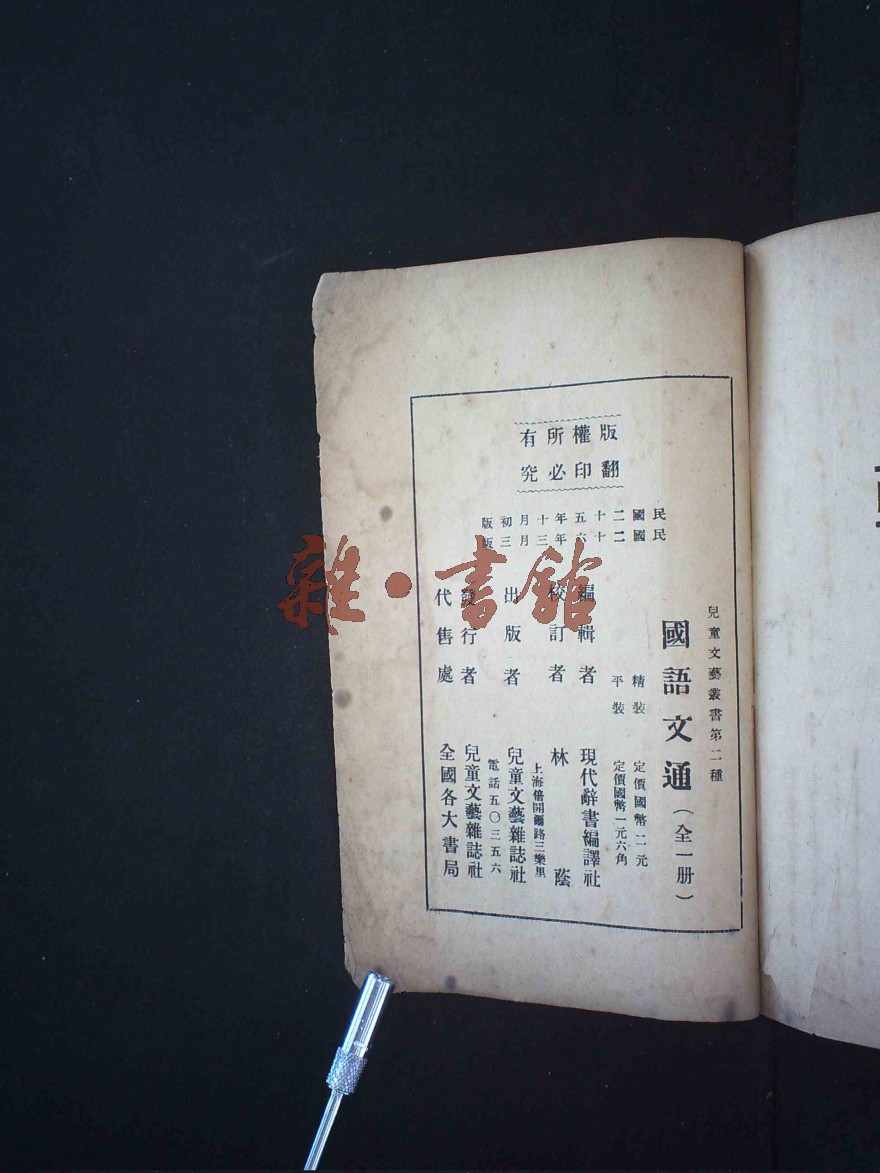 版權所有
翻印必究
民國二十五年十月初版
民國二十六年三月三版
兒童文藝叢書第二種
國語文通（全一册）
精裝 定價國幣二元
平裝 定價國幣一元六角
編輯者 現代辭書編譯社
校訂者 林蔭
上海倍開爾路三樂里
出版者 兒童文藝雜誌社
電話五〇三五六
發行者 兒童文藝雜誌社
代售處 全國各大書局
雜·書館